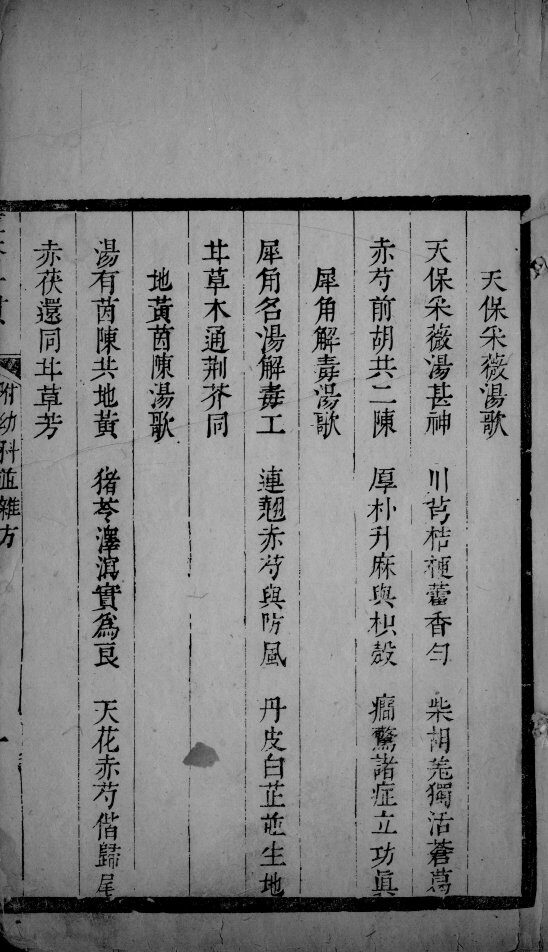 天保采薇湯歌
天保采薇湯甚神　川芎桔梗藿香勻　柴胡羌獨活蒼葛
赤芍前胡共二陳　厚朴升麻與枳殼　痫驚諸症立功眞
犀角解毒湯歌
犀角名湯解毒工　連翹赤芍與防風　丹皮白芷並生地
甘草木通荆芥同
地黃茵陳湯歌
湯有茵陳共地黃　猪苓澤瀉實爲良　天花赤芍偕歸尾
赤茯還同甘草芳
附幼科並雜方